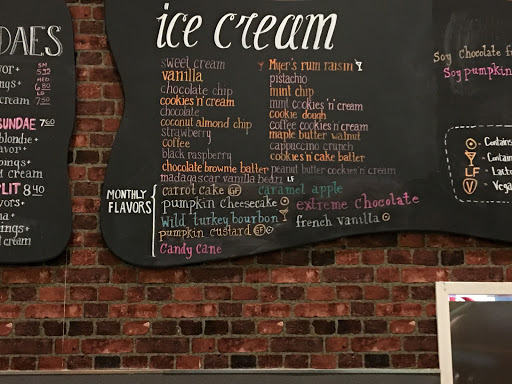 ice cream
DAES
vor+ SM 5.92
ings+ MED 6.80
cream LF 7.50
SUNDAE 7.60
blondie+
avor+
pings+
d cream
PLIT 8.40
vors+
na+
pings+
d cream
sweet cream
vanilla
chocolate chip
cookies 'n' cream
chocolate
coconut almond chip
strawberry
coffee
black raspberry
chocolate brownie batter
madagascar vanilla bean LF
Myer's rum raisin
pistachio
mint chip
mint cookies 'n' cream
cookie dough
coffee cookies 'n' cream
maple butter walnut
cappuccino crunch
cookies 'n' cake batter
peanut butter cookies 'n' cream
MONTHLY
FLAVORS
carrot cake GF caramel apple
pumpkin cheesecake extreme chocolate
Wild turkey bourbon french vanilla
pumpkin custard GF
Candy Cane
Soy Chocolate
Soy pumpkin
Contains
Contai
LF Lacto
V Vega